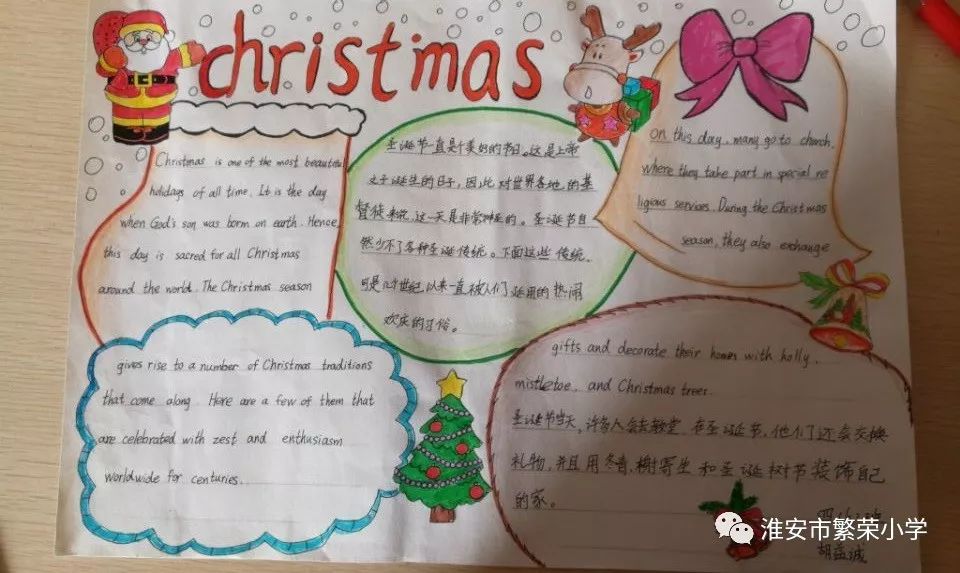 christmas
Christmas is one of the most beauteful
holidays of all time. It is the day
when God's son was born on earth. Hence
this day is sacred for all Christmas
around the world. The Christmas season
圣诞节一直是个美好的节日。这是上帝
之子诞生的日子，因此对世界各地的基
督徒来说，这一天是非常神圣的。圣诞节自
然少不了各种圣诞传统。下面这些传统，
可是21世纪以来一直被人们延用的热闹
欢庆的习俗。
on this day, many go to church,
where they take part in special re
ligious services. During the Christmas
season, they also exchange
gives rise to a number of Christmas traditions
that come along. Here are a few of them that
are celebrated with zest and enthusiasm
worldwide for centuries.
gifts and decorate their homes with holly,
mistletoe, and Christmas trees.
圣诞节当天，许多人会去教堂，在圣诞节，他们还会交换
礼物，并且用冬青，槲寄生和圣诞树节装饰自己
的家。
淮安市繁荣小学